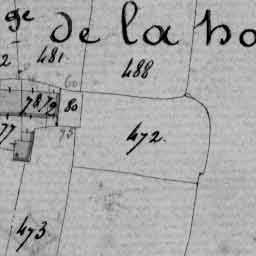 ge de la ho
2 481 488
78 79 80
77 75 472
473